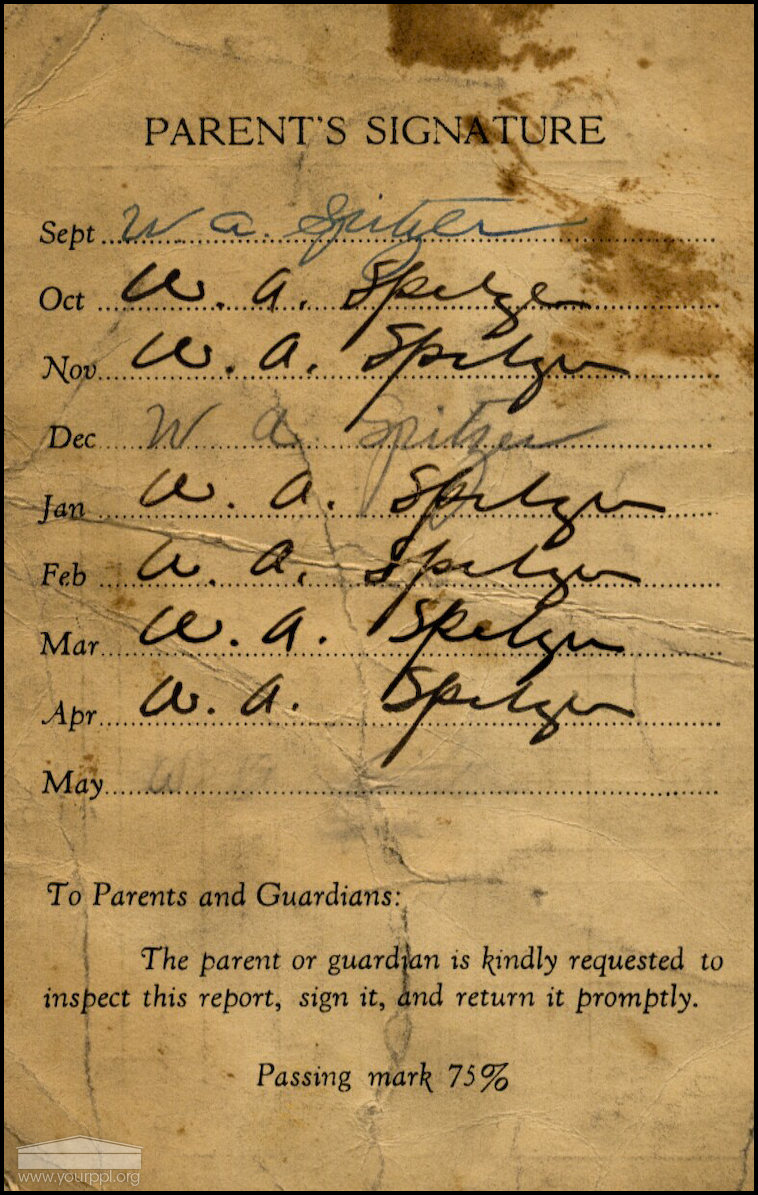 PARENT'S SIGNATURE
Sept W. A. Spitzer
Oct W. A. Spitzer
Nov W. A. Spitzer
Dec W A Spitzer
Jan W. A. Spitzer
Feb W. A. Spitzer
Mar W. A. Spitzer
Apr W. A. Spitzer
May
To Parents and Guardians:
The parent or guardian is kindly requested to
inspect this report, sign it, and return it promptly.
Passing mark 75%
www.yourppl.org